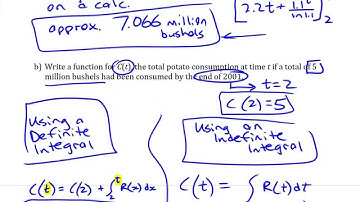 on a calc.
approx. 7.066 million
bushels
b) Write a function for C(t), the total potato consumption at time t if a total of 5
million bushels had been consumed by the end of 2001.
→ t = 2
C(2) = 5
Using a
Definite
Integral
Using an
Indefinite
Integral
C(t) = C(2) + ∫₂ᵗ R(x) dx
C(t) = ∫ R(t) dt